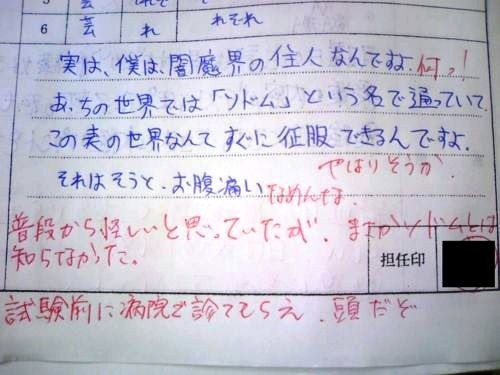 5 芸 れ
6 芸 れ れぞれ
実は、僕は、闇魔界の住人なんですよ。何っ!
あっちの世界では「ソドム」という名で通っていて、
この表の世界なんてすぐに征服できるんですよ。
やはりそうか。
それはそうと、お腹痛い なめんなよ
普段から怪しいと思っていたが、まさかソドムとは
知らなかった。
担任印
試験前に病院で診てもらえ、頭だぞ